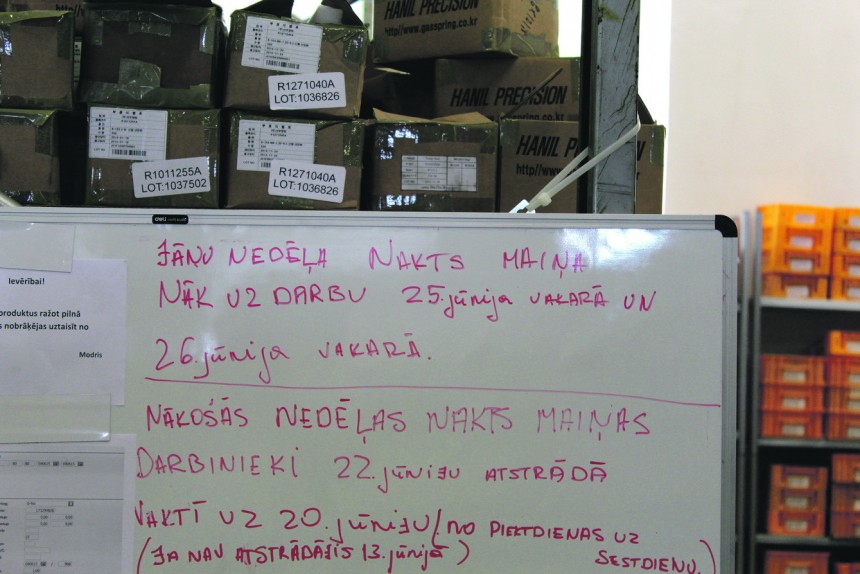 HANIL PRECISION
http//www.gasspring.co.kr
R1271040A
LOT:1036826
HANIL PRECISION
R1011255A
LOT:1037502
R1271040A
LOT:1036826
HANIL
http//www
Ievērībai!
produktus ražot pilnā
s nobrāķējas uztaisīt no
Modris
JĀŅU NEDĒĻA NAKTS MAIŅA
NĀK UZ DARBU 25.jūnija VAKARĀ UN
26.jūnija VAKARĀ.
NĀKOŠĀS NEDĒĻAS NAKTS MAIŅAS
DARBINIEKI 22.jūniju ATSTRĀDĀ
NAKTĪ UZ 20.jūniju/no PIEKTDIENAS UZ
SESTDIENU.)
(JA NAV ATSTRĀDĀJIS 13.jūnijā)